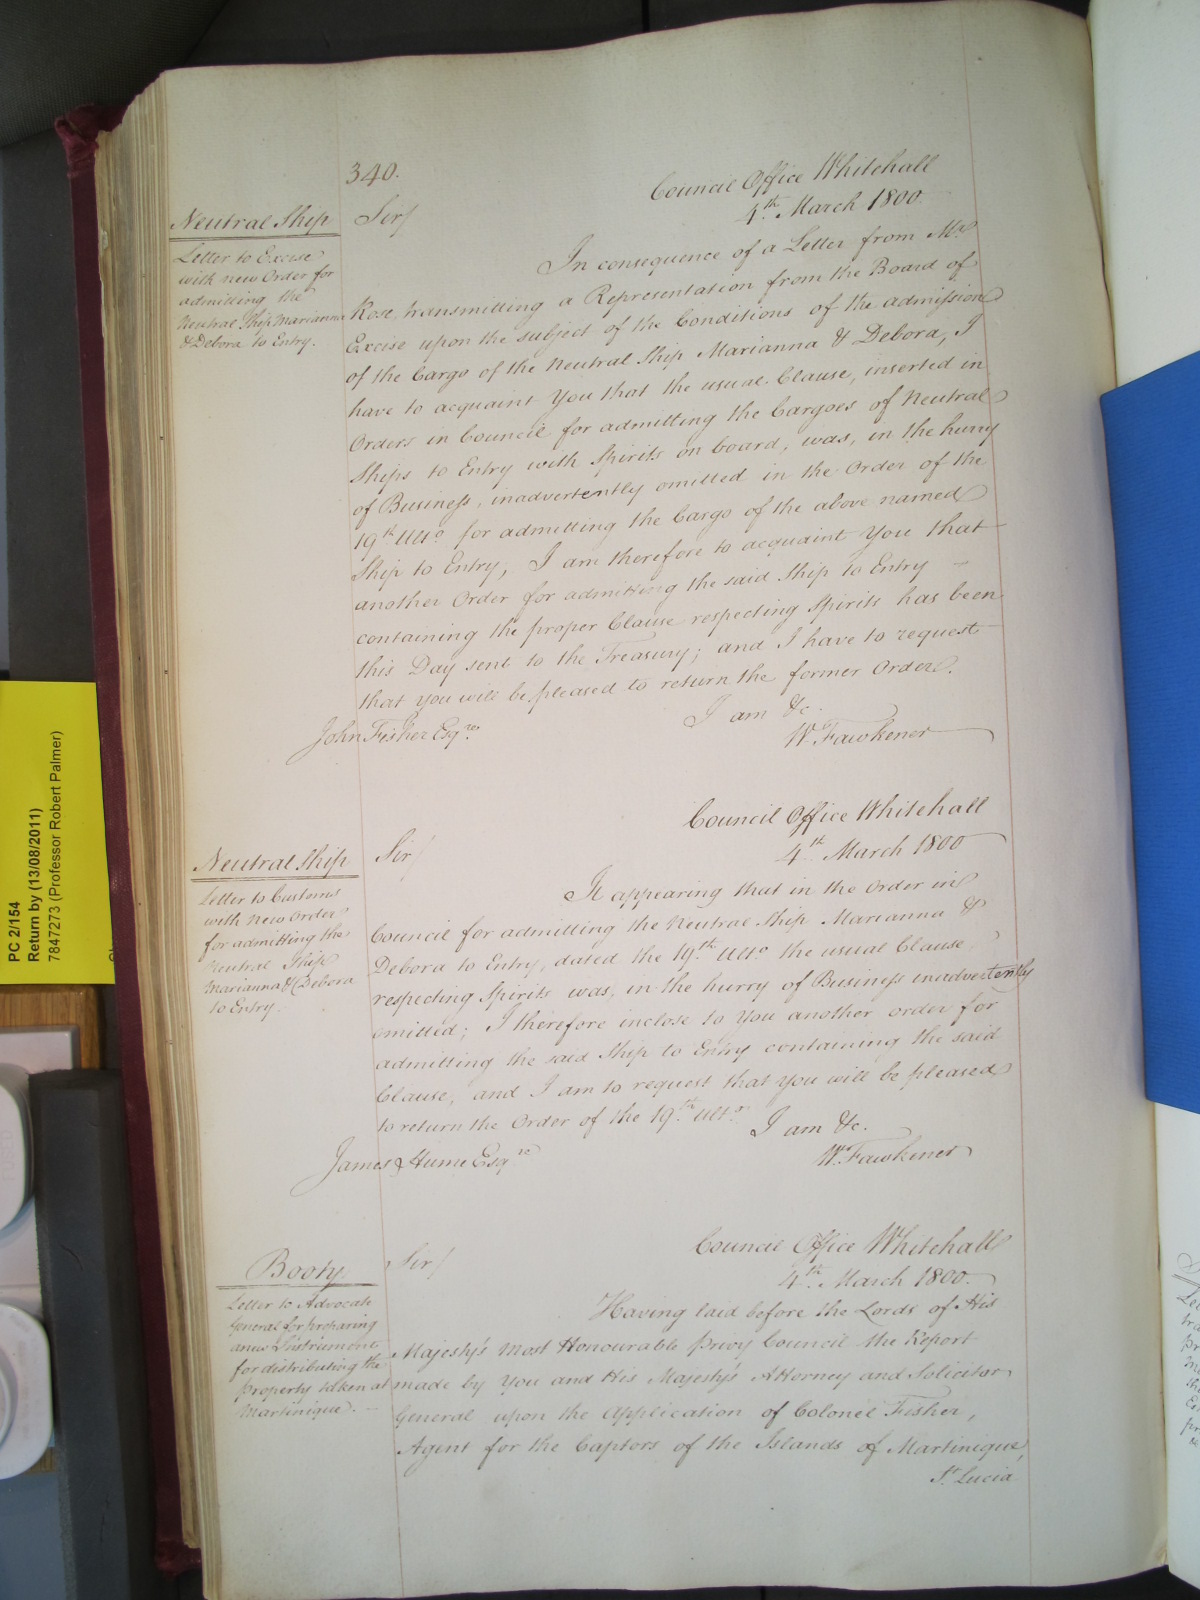 340.
Council Office Whitehall
4th March 1800.
Neutral Ship
Letter to Excise
with new Order for
admitting the
Neutral Ship Marianna
& Debora to Entry.
Sir/
In consequence of a Letter from Mr.
Rose, transmitting a Representation from the Board of
Excise upon the subject of the Conditions of the admission
of the Cargo of the Neutral Ship Marianna & Debora, I
have to acquaint You that the usual Clause, inserted in
Orders in Council for admitting the Cargoes of Neutral
Ships to Entry with Spirits on board, was, in the hurry
of Business, inadvertently omitted in the Order of the
19th Ulto. for admitting the Cargo of the above named
Ship to Entry, I am therefore to acquaint You that
another Order for admitting the said Ship to Entry –
containing the proper Clause respecting Spirits has been
this Day sent to the Treasury; and I have to request
that you will be pleased to return the former Order.
I am &c.
W. Fawkener
John Fisher Esqre.
Council Office Whitehall
4th March 1800
Neutral Ship
Letter to Customs
with New Order
for admitting the
Neutral Ship
Marianna & Debora
to Entry.
Sir/
It appearing that in the Order in
Council for admitting the Neutral Ship Marianna &
Debora to Entry, dated the 19th Ulto. the usual Clause
respecting Spirits was, in the hurry of Business inadvertently
omitted; I therefore inclose to You another order for
admitting the said Ship to Entry containing the said
Clause, and I am to request that You will be pleased
to return the Order of the 19th Ulto.
I am &c.
W. Fawkener
James Hume Esqre
Council Office Whitehall
4th March 1800.
Booty
Letter to Advocate
General for preparing
a new Instrument
for distributing the
Property taken at
Martinique. –
Sir/
Having laid before the Lords of His
Majesty's most Honourable Privy Council the Report
made by You and His Majesty's Attorney and Solicitor
General upon the Application of Colonel Fisher,
Agent for the Captors of the Islands of Martinique,
St. Lucia
PC 2/154
Return by (13/08/2011)
7847273 (Professor Robert Palmer)